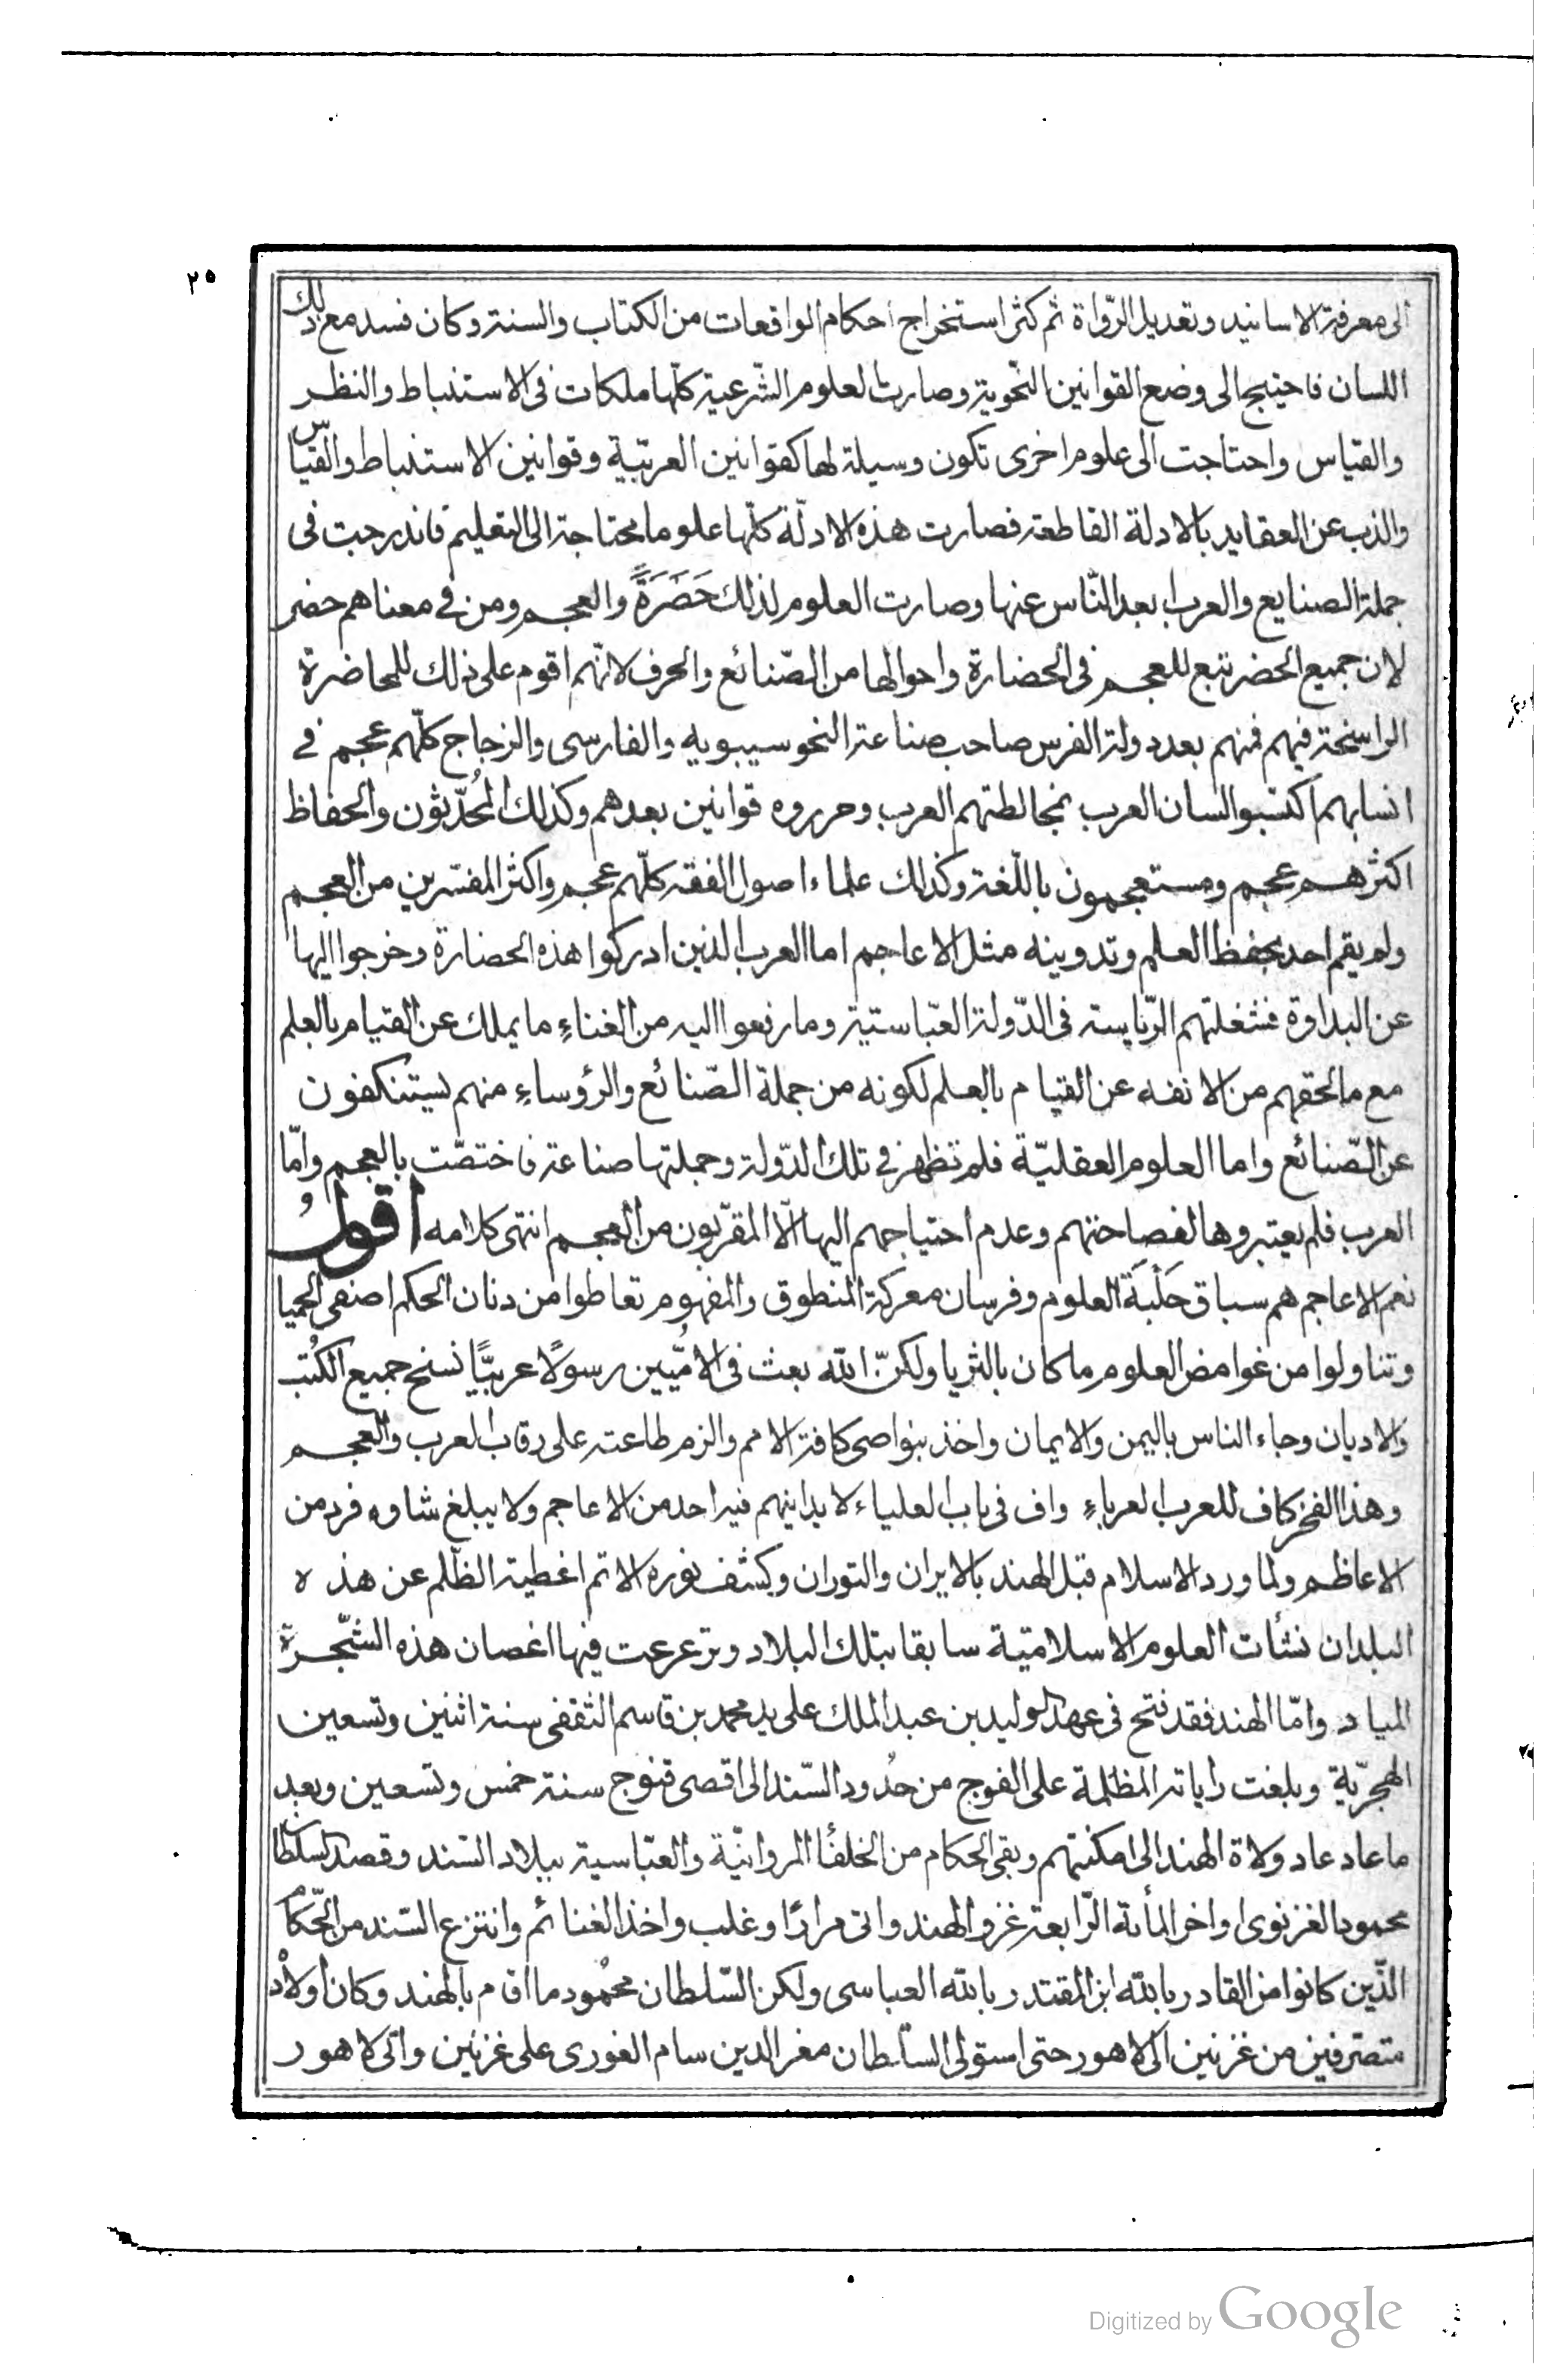 ٢٥
الى معرفة الاسانيد وتعديل الرّواة ثم كثر استخراج احكام الواقعات من الكتاب والسنة وكان فسد مع ذلك
اللسان فاحتيج الى وضع القوانين النحّوية وصارت العلوم الشّرعية كلّها ملكات فى الاستنباط والنظر
والقياس واحتاجت الى علوم اخرى تكون وسيلة لها كقوانين العربيّة وقوانين الاستنباط والقياس
والذب عن العقايد بالادلة القاطعة فصارت هذه الادلّة كلّها علوما محتاجة الى التعليم فاندرجت فى
جملة الصنايع والعرب ابعد النّاس عنها وصارت العلوم لذلك حَضَرَةً والعجم ومن فى معناهم حضر
لان جميع الحضر تبع للعجم فى الحضارة واحوالها من الصّنائع والحرف لانّهم اقوم على ذلك للحاضرة
الراسخة فيهم فمنهم بعد دولة الفرس صاحب صناعة النحو سيبويه والفارسى والزجاج كلّهم عجم فى
انسابهم اكتسبوا لسان العرب بمخالطتهم العرب وحرروه قوانين بعدهم وكذلك المُحدّثون والحفاظ
اكثرهم عجم ومستعجمون باللّغة وكذلك علماء اصول الفقه كلّهم عجم واكثر المفسّرين من العجم
ولم يقم احد بحفظ العلم وتدوينه مثل الاعاجم اما العرب الذين ادركوا هذه الحضارة وخرجوا اليها
عن البداوة فشغلتهم الرّياسة فى الدّولة العبّاسيّة وما رفعوا اليه من الغناءِ ما يملك عن القيام بالعلم
مع ما لحقهم من الانفة عن القيام بالعلم لكونه من جملة الصّنائع والرؤساءِ منهم يستنكفون
عن الصّنائع واما العلوم العقليّة فلم تظهر فى تلك الدّولة وحملتها صناعة فاختصّت بالعجم وامّا
العرب فلم يعتبروها لفصاحتهم وعدم احتياجهم اليها الّا المقرّبون من العجم انتهى كلامه اقولُ
نعم الاعاجم هم سباق حَلْبَة العلوم وفرسان معركة المنطوق والمفهوم تعاطوا من دنان الحكم اصفى الحميا
وتناولوا من غوامض العلوم ما كان بالثريا ولكنّ الله بعث فى الامُّيين رسولًا عربيًّا نسخ جميع الكُتب
والاديان وجاء الناس باليمن والايمان واخذ بنواصى كافة الامم والزم طاعته على رقاب العرب والعجم
وهذا الفخر كاف للعرب العرباءِ واف فى باب العلياء لا يدانيهم فيه احد من الاعاجم ولا يبلغ شاوه فرد من
الاعاظم ولما ورد الاسلام قبل الهند بالايران والتوران وكشف نوره الاتم اغطية الظّلم عن هذه
البلدان نشأت العلوم الاسلاميّة سابقا بتلك البلاد وترعرعت فيها اغصان هذه الشّجرة
المياد وامّا الهند فقد فتح فى عهد الوليد بن عبد الملك على يد محمد بن قاسم الثقفى سنة اثنين وتسعين
الهجريّة وبلغت راياته المظلّة على الفوج من حُدود السّند الى اقصى قنوج سنة خمس وتسعين وبعد
ما عاد عاد ولاة الهند الى امكنتهم وبقى الحكام من الخلفأ المروانيّة والعبّاسية ببلاد السّند وقصد السلطان
محمود الغزنوى اواخر المأئة الرّابعة غزو الهند واتى مرارًا وغلب واخذ الغنائم وانتزع السّند من الحّكام
الذّين كانوا من القادر بالله ابن المقتدر بالله العباسى ولكن السّلطان محمود ما اقام بالهند وكان اولاده
متصرفين من غزنين الى لاهور حتى استولى السلطان معز الدين سام الغورى على غزنين واتى لاهور
Digitized by Google